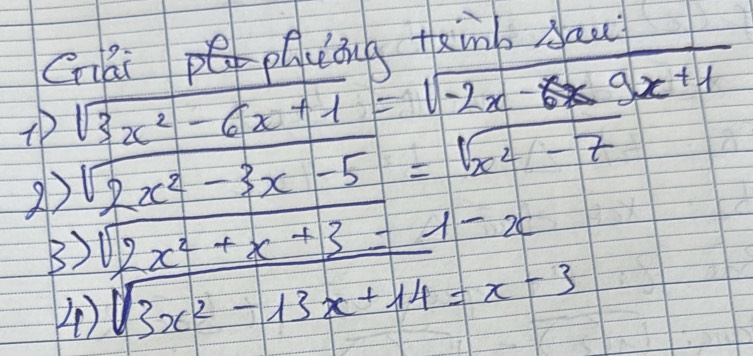 Giải phương trình sau:
1) √(3x² - 6x + 1) = √(-2x - 9x + 1)
2) √(2x² - 3x - 5) = √(x² - 7)
3) √(2x² + x + 3) = 1 - x
4) √(3x² - 13x + 14) = x - 3